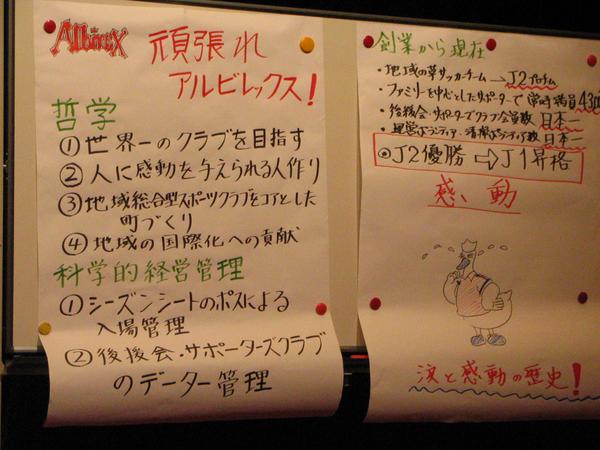 Albirex
頑張れ
アルビレックス!
哲学
①世界一のクラブを目指す
②人に感動を与えられる人作り
③地域総合型スポーツクラブをコアとした
町づくり
④地域の国際化への貢献
科学的経営管理
①シーズンシートのポスによる
入場管理
②後援会・サポーターズクラブ
のデーター管理
創業から現在
・地域の草サッカーチーム→J2プロチーム
・ファミリーを中心としたサポーターで常時満員43,000
・後援会・サポーターズクラブ会員数日本一
・運営ボランティア・清掃ボランティア数日本一
◎J2優勝⇨J1昇格
感動
涙と感動の歴史!